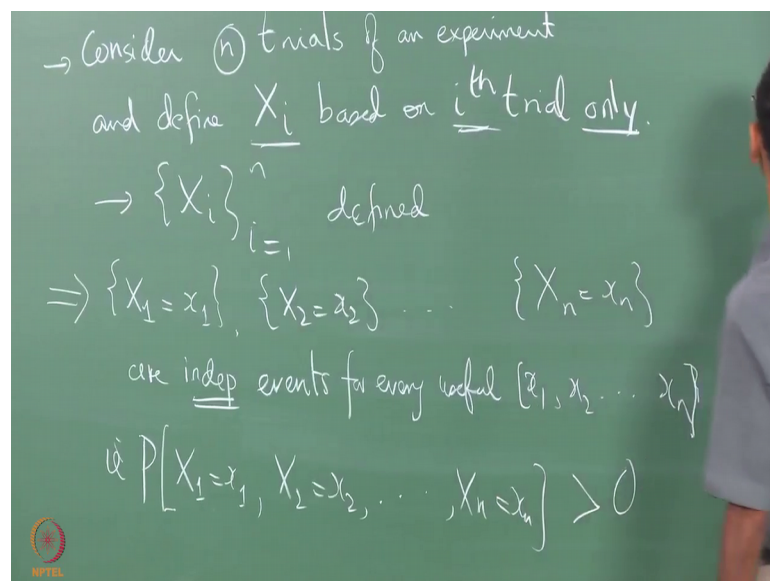 → Consider (n) trials of an experiment
and define X_i based on i^th trial only.
→ {X_i}_{i=1}^n defined
⇒ {X_1 = x_1}, {X_2 = x_2} .... {X_n = x_n}
are indep events for every useful [x_1, x_2 ... x_n]
ie P[X_1 = x_1, X_2 = x_2, ...., X_n = x_n] > 0
NPTEL